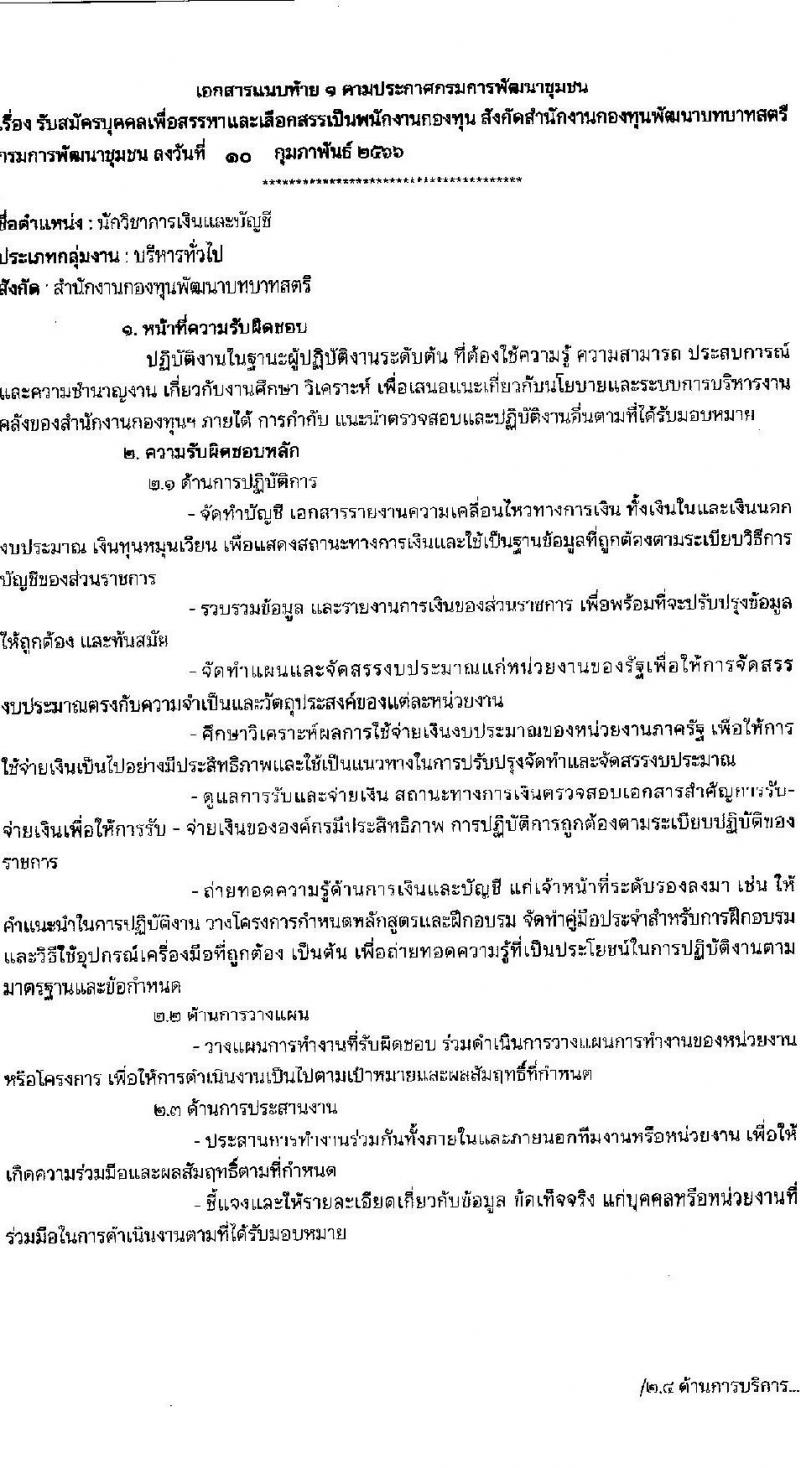 เอกสารแนบท้าย ๑ ตามประกาศกรมการพัฒนาชุมชน
เรื่อง รับสมัครบุคคลเพื่อสรรหาและเลือกสรรเป็นพนักงานกองทุน สังกัดสำนักงานกองทุนพัฒนาบทบาทสตรี
กรมการพัฒนาชุมชน ลงวันที่ ๑๐ กุมภาพันธ์ ๒๕๖๖
***************************************
ชื่อตำแหน่ง : นักวิชาการเงินและบัญชี
ประเภทกลุ่มงาน : บริหารทั่วไป
สังกัด : สำนักงานกองทุนพัฒนาบทบาทสตรี
๑. หน้าที่ความรับผิดชอบ
ปฏิบัติงานในฐานะผู้ปฏิบัติงานระดับต้น ที่ต้องใช้ความรู้ ความสามารถ ประสบการณ์
และความชำนาญงาน เกี่ยวกับงานศึกษา วิเคราะห์ เพื่อเสนอแนะเกี่ยวกับนโยบายและระบบการบริหารงาน
คลังของสำนักงานกองทุนฯ ภายใต้ การกำกับ แนะนำตรวจสอบและปฏิบัติงานอื่นตามที่ได้รับมอบหมาย
๒. ความรับผิดชอบหลัก
๒.๑ ด้านการปฏิบัติการ
- จัดทำบัญชี เอกสารรายงานความเคลื่อนไหวทางการเงิน ทั้งเงินในและเงินนอก
งบประมาณ เงินทุนหมุนเวียน เพื่อแสดงสถานะทางการเงินและใช้เป็นฐานข้อมูลที่ถูกต้องตามระเบียบวิธีการ
บัญชีของส่วนราชการ
- รวบรวมข้อมูล และรายงานการเงินของส่วนราชการ เพื่อพร้อมที่จะปรับปรุงข้อมูล
ให้ถูกต้อง และทันสมัย
- จัดทำแผนและจัดสรรงบประมาณแก่หน่วยงานของรัฐเพื่อให้การจัดสรร
งบประมาณตรงกับความจำเป็นและวัตถุประสงค์ของแต่ละหน่วยงาน
- ศึกษาวิเคราะห์ผลการใช้จ่ายเงินงบประมาณของหน่วยงานภาครัฐ เพื่อให้การ
ใช้จ่ายเงินเป็นไปอย่างมีประสิทธิภาพและใช้เป็นแนวทางในการปรับปรุงจัดทำและจัดสรรงบประมาณ
- ดูแลการรับและจ่ายเงิน สถานะทางการเงินตรวจสอบเอกสารสำคัญการรับ-
จ่ายเงินเพื่อให้การรับ - จ่ายเงินขององค์กรมีประสิทธิภาพ การปฏิบัติการถูกต้องตามระเบียบปฏิบัติของ
ราชการ
- ถ่ายทอดความรู้ด้านการเงินและบัญชี แก่เจ้าหน้าที่ระดับรองลงมา เช่น ให้
คำแนะนำในการปฏิบัติงาน วางโครงการกำหนดหลักสูตรและฝึกอบรม จัดทำคู่มือประจำสำหรับการฝึกอบรม
และวิธีใช้อุปกรณ์เครื่องมือที่ถูกต้อง เป็นต้น เพื่อถ่ายทอดความรู้ที่เป็นประโยชน์ในการปฏิบัติงานตาม
มาตรฐานและข้อกำหนด
๒.๒ ด้านการวางแผน
- วางแผนการทำงานที่รับผิดชอบ ร่วมดำเนินการวางแผนการทำงานของหน่วยงาน
หรือโครงการ เพื่อให้การดำเนินงานเป็นไปตามเป้าหมายและผลสัมฤทธิ์ที่กำหนด
๒.๓ ด้านการประสานงาน
- ประสานการทำงานร่วมกันทั้งภายในและภายนอกทีมงานหรือหน่วยงาน เพื่อให้
เกิดความร่วมมือและผลสัมฤทธิ์ตามที่กำหนด
- ชี้แจงและให้รายละเอียดเกี่ยวกับข้อมูล ข้อเท็จจริง แก่บุคคลหรือหน่วยงานที่
ร่วมมือในการดำเนินงานตามที่ได้รับมอบหมาย
/๒.๔ ด้านการบริการ...